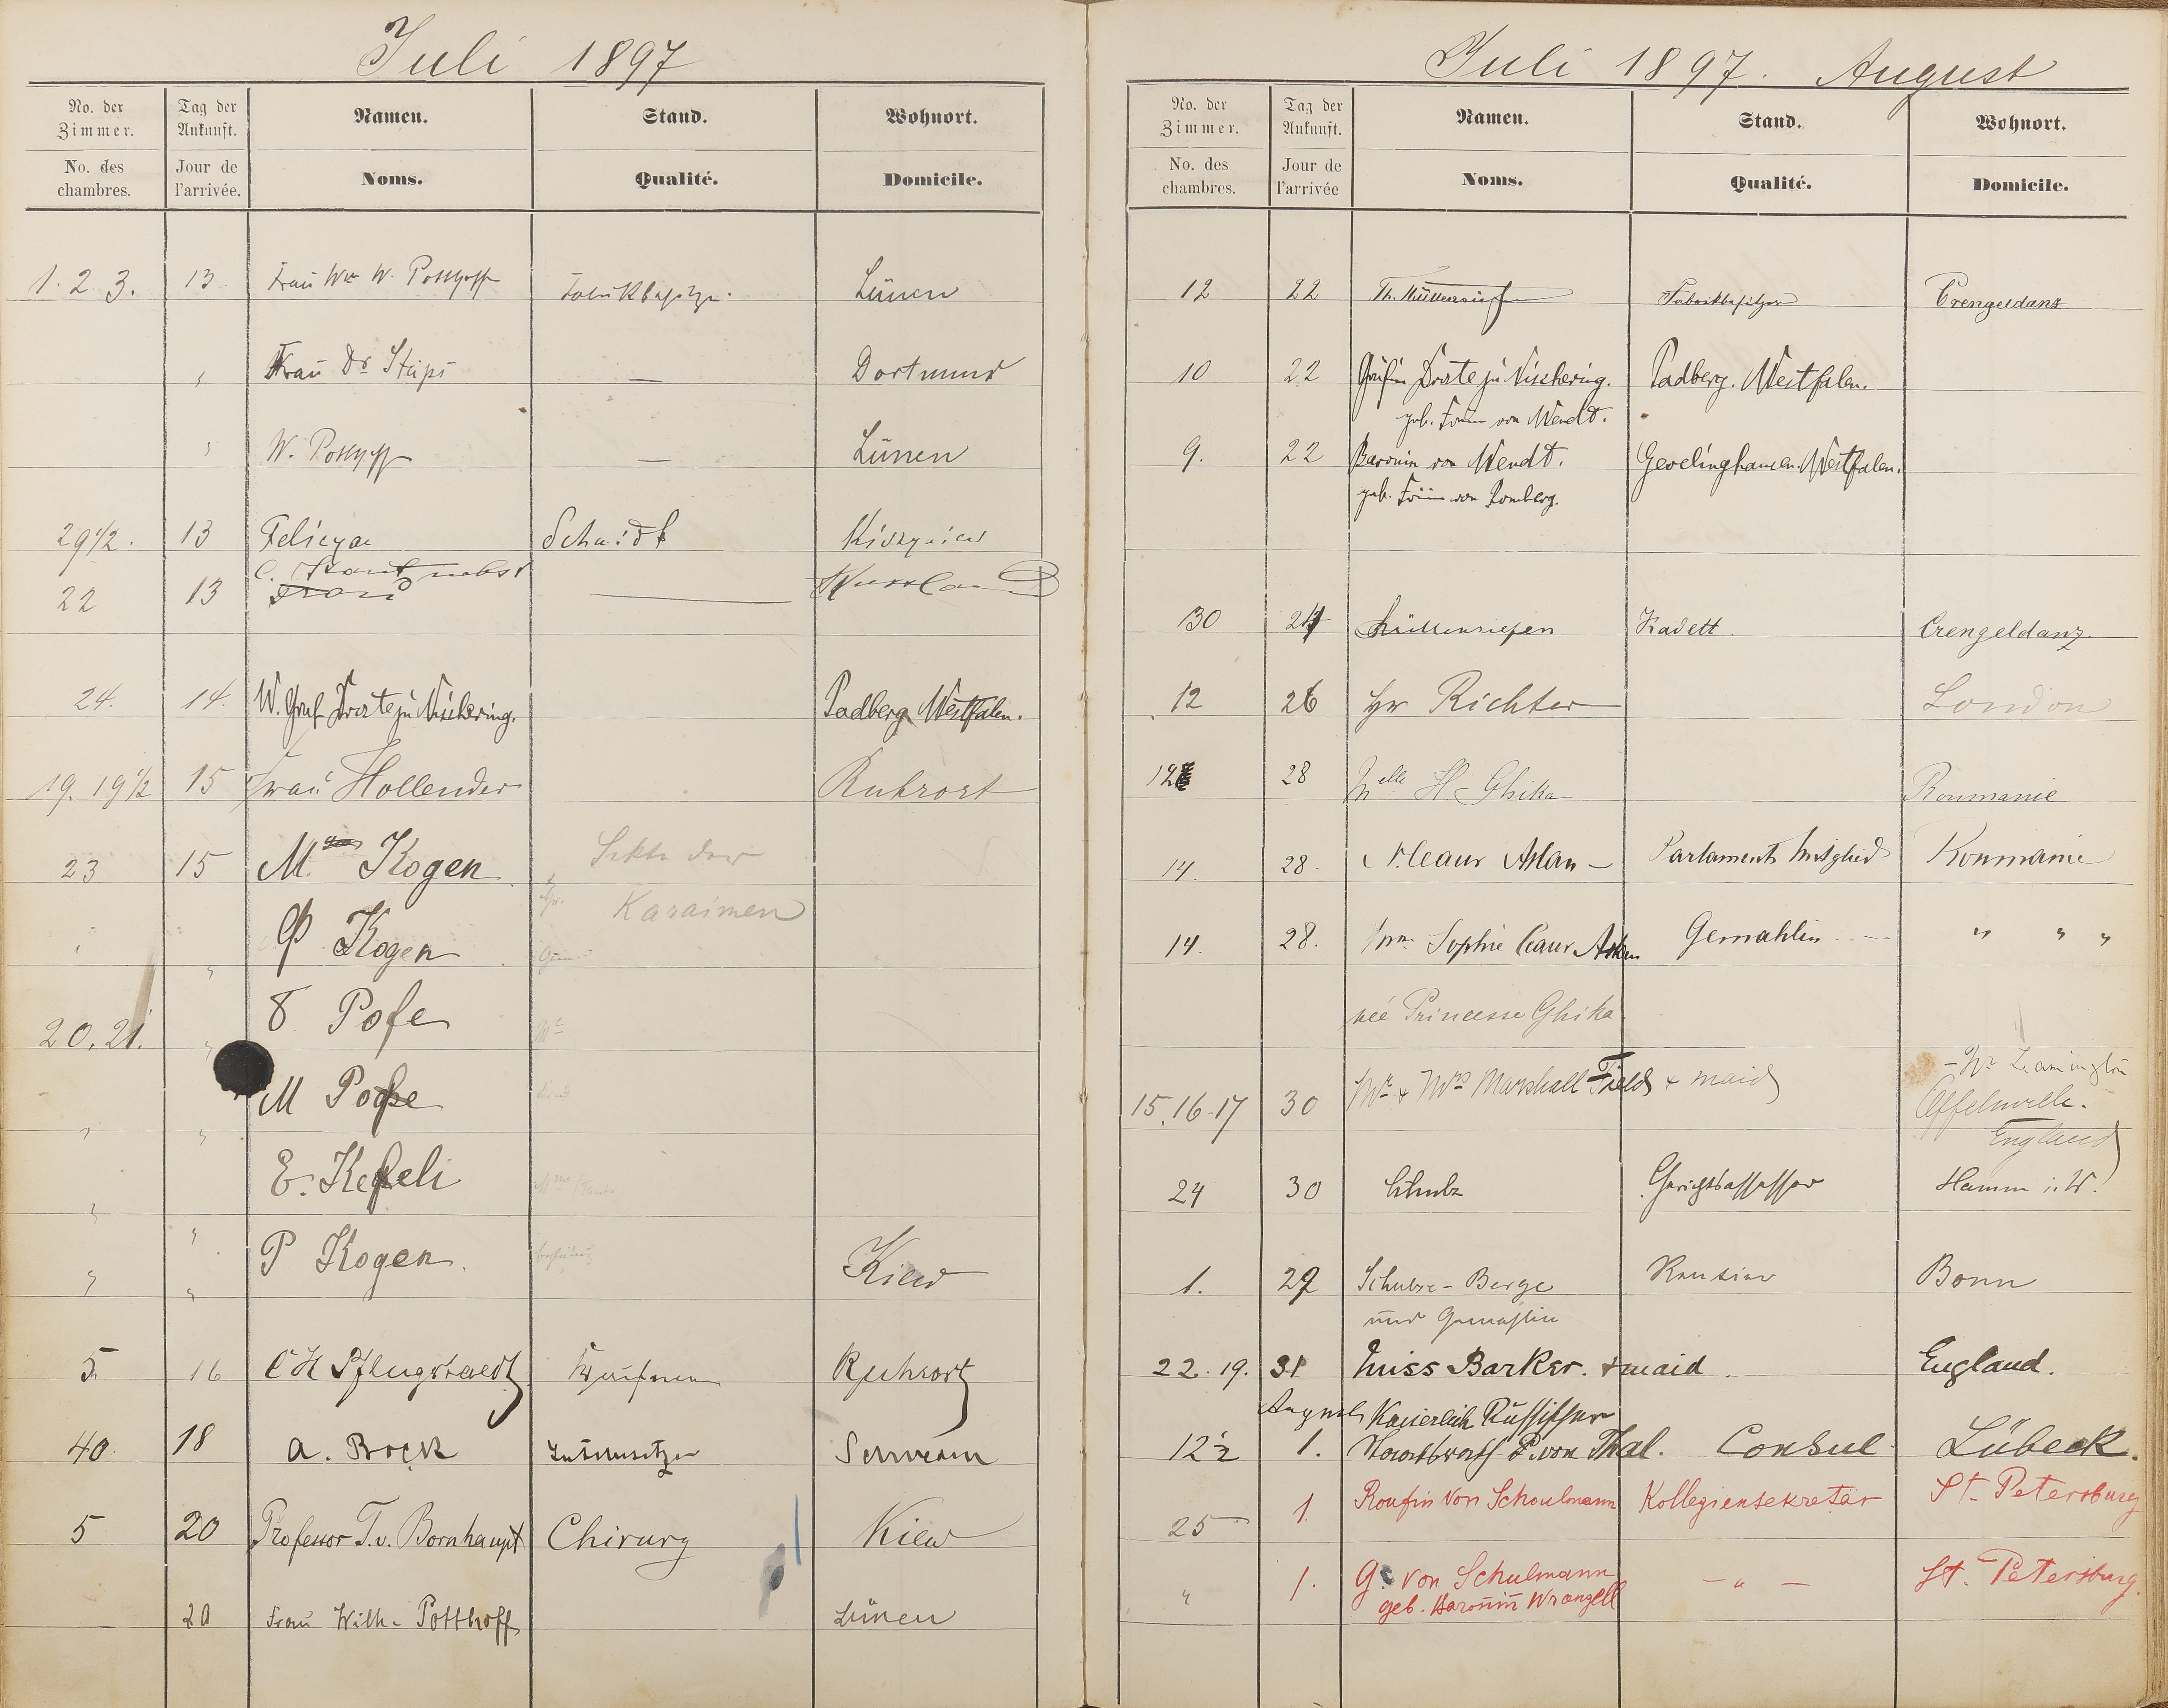 Juli 1897
No. der Zimmer. Tag der Ankunft. Namen. Stand. Wohnort.
No. des chambres. Jour de l'arrivée. Noms. Qualité. Domicile.
1. 2. 3. 13. Frau Wwe W. Potthoff Fabrikbesitzer. Lünen
" Frau Dr Stüps — Dortmund
" W. Potthoff — Lünen
29 1/2. 13 Felicya Schmidt Kiszyniew
22 13 C. nebst Frau — Russland
24. 14. W. Graf Droste zu Vischering. Padberg Westfalen.
19. 19 1/2 15 Frau Hollender Ruhrort
23 15 M. Kogen Sekte der
" " Kogen Karaimen
20. 21. " Pofe
" " M
" " E. Kefeli
" " P Kogen. Kiew
5. 16 C H Pflugstaedt Kaufmann Ruhrort
40. 18 A. Bock
5 20 Professor T. v. Bornhaupt Chirurg Kiew
20 Frau Wilh. Potthoff Lünen
Juli 1897. August
No. der Zimmer. Tag der Ankunft. Namen. Stand. Wohnort.
No. des chambres. Jour de l'arrivée Noms. Qualité. Domicile.
12 22 Th. Müllensiefen Fabrikbesitzer Crengeldanz
10 22 Gräfin Droste zu Vischering. Padberg. Westfalen.
geb. Freiin von Wendt.
9. 22 Baronin von Wendt. Gevelinghausen. Westfalen.
geb. Freiin von Romberg.
30 24 Müllensiefen Kadett. Crengeldanz.
12 26 Hr Richter London
12 28 Melle H Ghika Roumanie
14. 28. Aslan — Parlaments Mitglied Roumanie
14. 28. Sophie Aslan Gemahlin — " " "
née Princesse Ghika
15. 16-17 30 Mr & Mrs Marshall Field & maid — Nr Leamington
England
24 30 Schulz Gerichtsassessor Hamm i. W.
1. 29 Schulze-Berge Rentier Bonn
und Gemahlin
22. 19. 31 Miss Barker. & maid. England.
August Kaiserlich Russischer
12 1/2 1. P. von Thal. Consul Lübeck.
25 1. von Schoulmann Kollegiensekretär St. Petersburg
" 1. G. von Schulmann — " — St. Petersburg.
geb. Baronin Wrangell